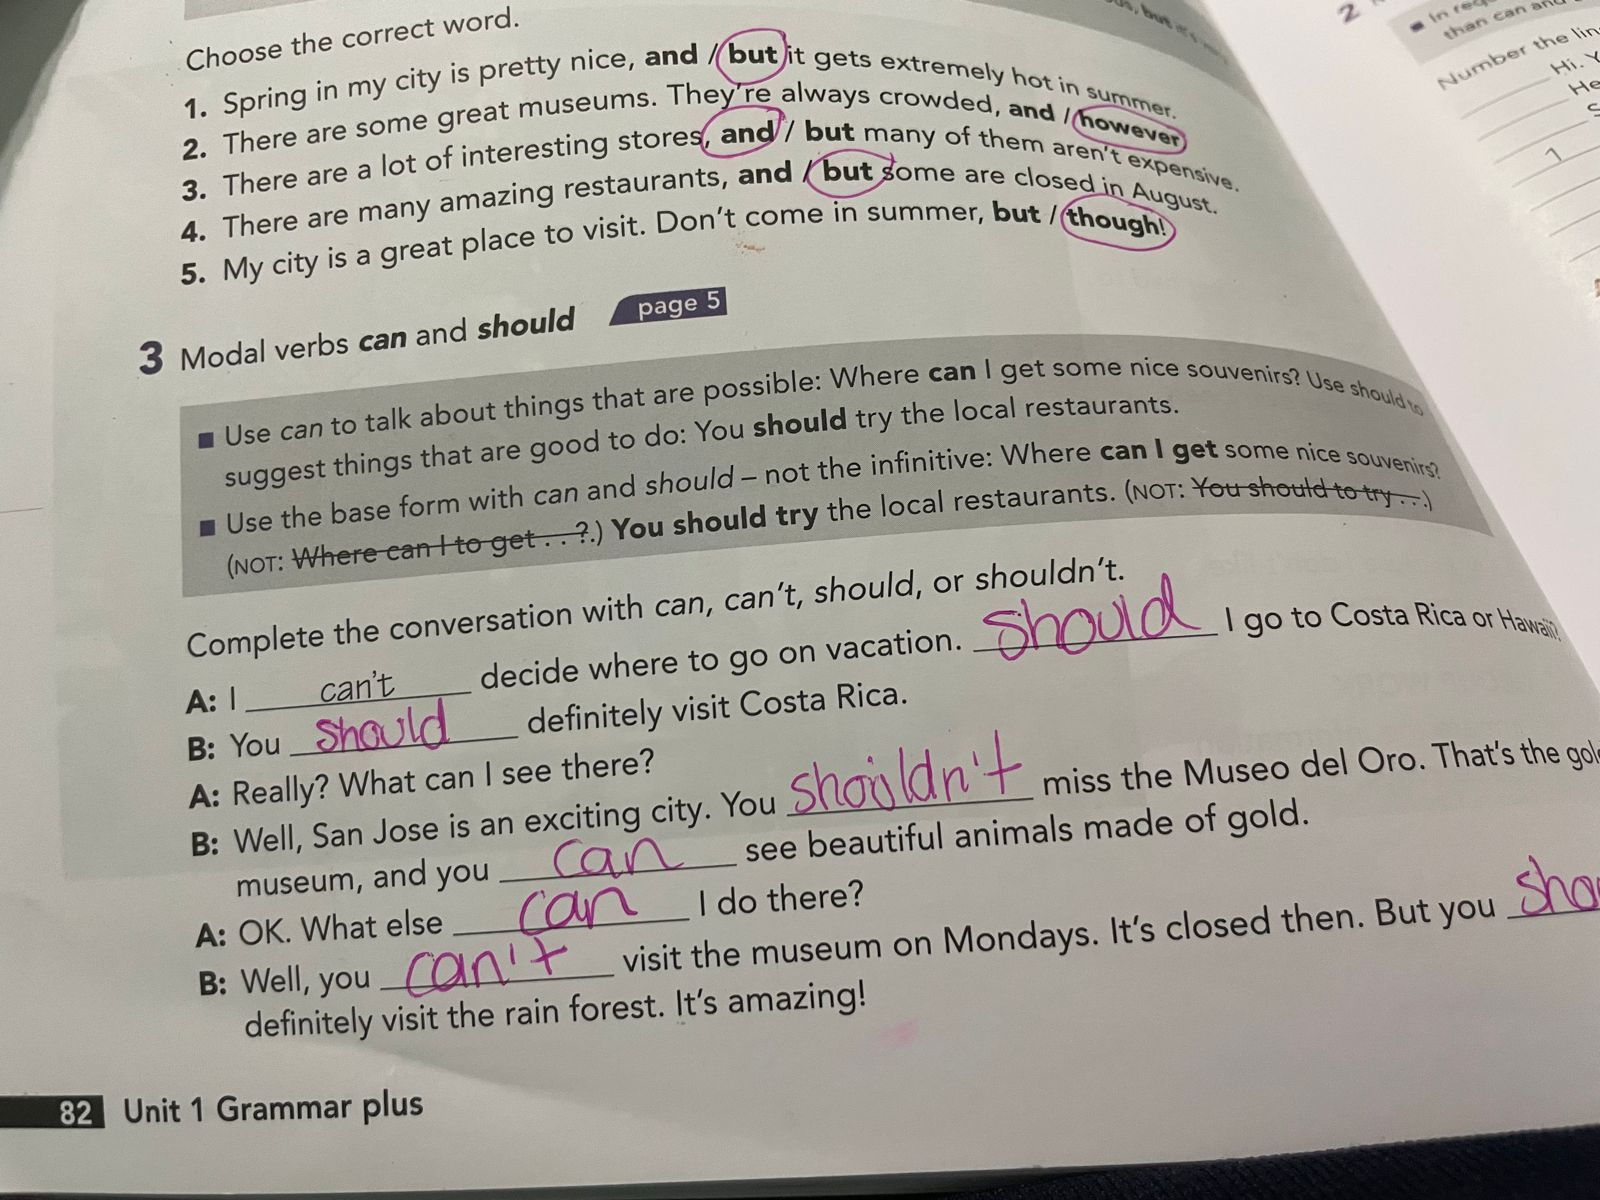 Choose the correct word.
1. Spring in my city is pretty nice, and / but it gets extremely hot in summer.
2. There are some great museums. They're always crowded, and / however
3. There are a lot of interesting stores, and / but many of them aren't expensive.
4. There are many amazing restaurants, and / but some are closed in August.
5. My city is a great place to visit. Don't come in summer, but / though!
3 Modal verbs can and should page 5
■ Use can to talk about things that are possible: Where can I get some nice souvenirs? Use should to
suggest things that are good to do: You should try the local restaurants.
■ Use the base form with can and should – not the infinitive: Where can I get some nice souvenirs?
(NOT: Where can I to get . . . ?.) You should try the local restaurants. (NOT: You should to try . . .)
Complete the conversation with can, can't, should, or shouldn't.
A: I can't decide where to go on vacation. should I go to Costa Rica or Hawaii?
B: You should definitely visit Costa Rica.
A: Really? What can I see there?
B: Well, San Jose is an exciting city. You shouldn't miss the Museo del Oro. That's the gol
museum, and you can see beautiful animals made of gold.
A: OK. What else can I do there?
B: Well, you can't visit the museum on Mondays. It's closed then. But you sho
definitely visit the rain forest. It's amazing!
82 Unit 1 Grammar plus
2
■ In req
than can and
Number the lin
Hi. Y
He
S
1